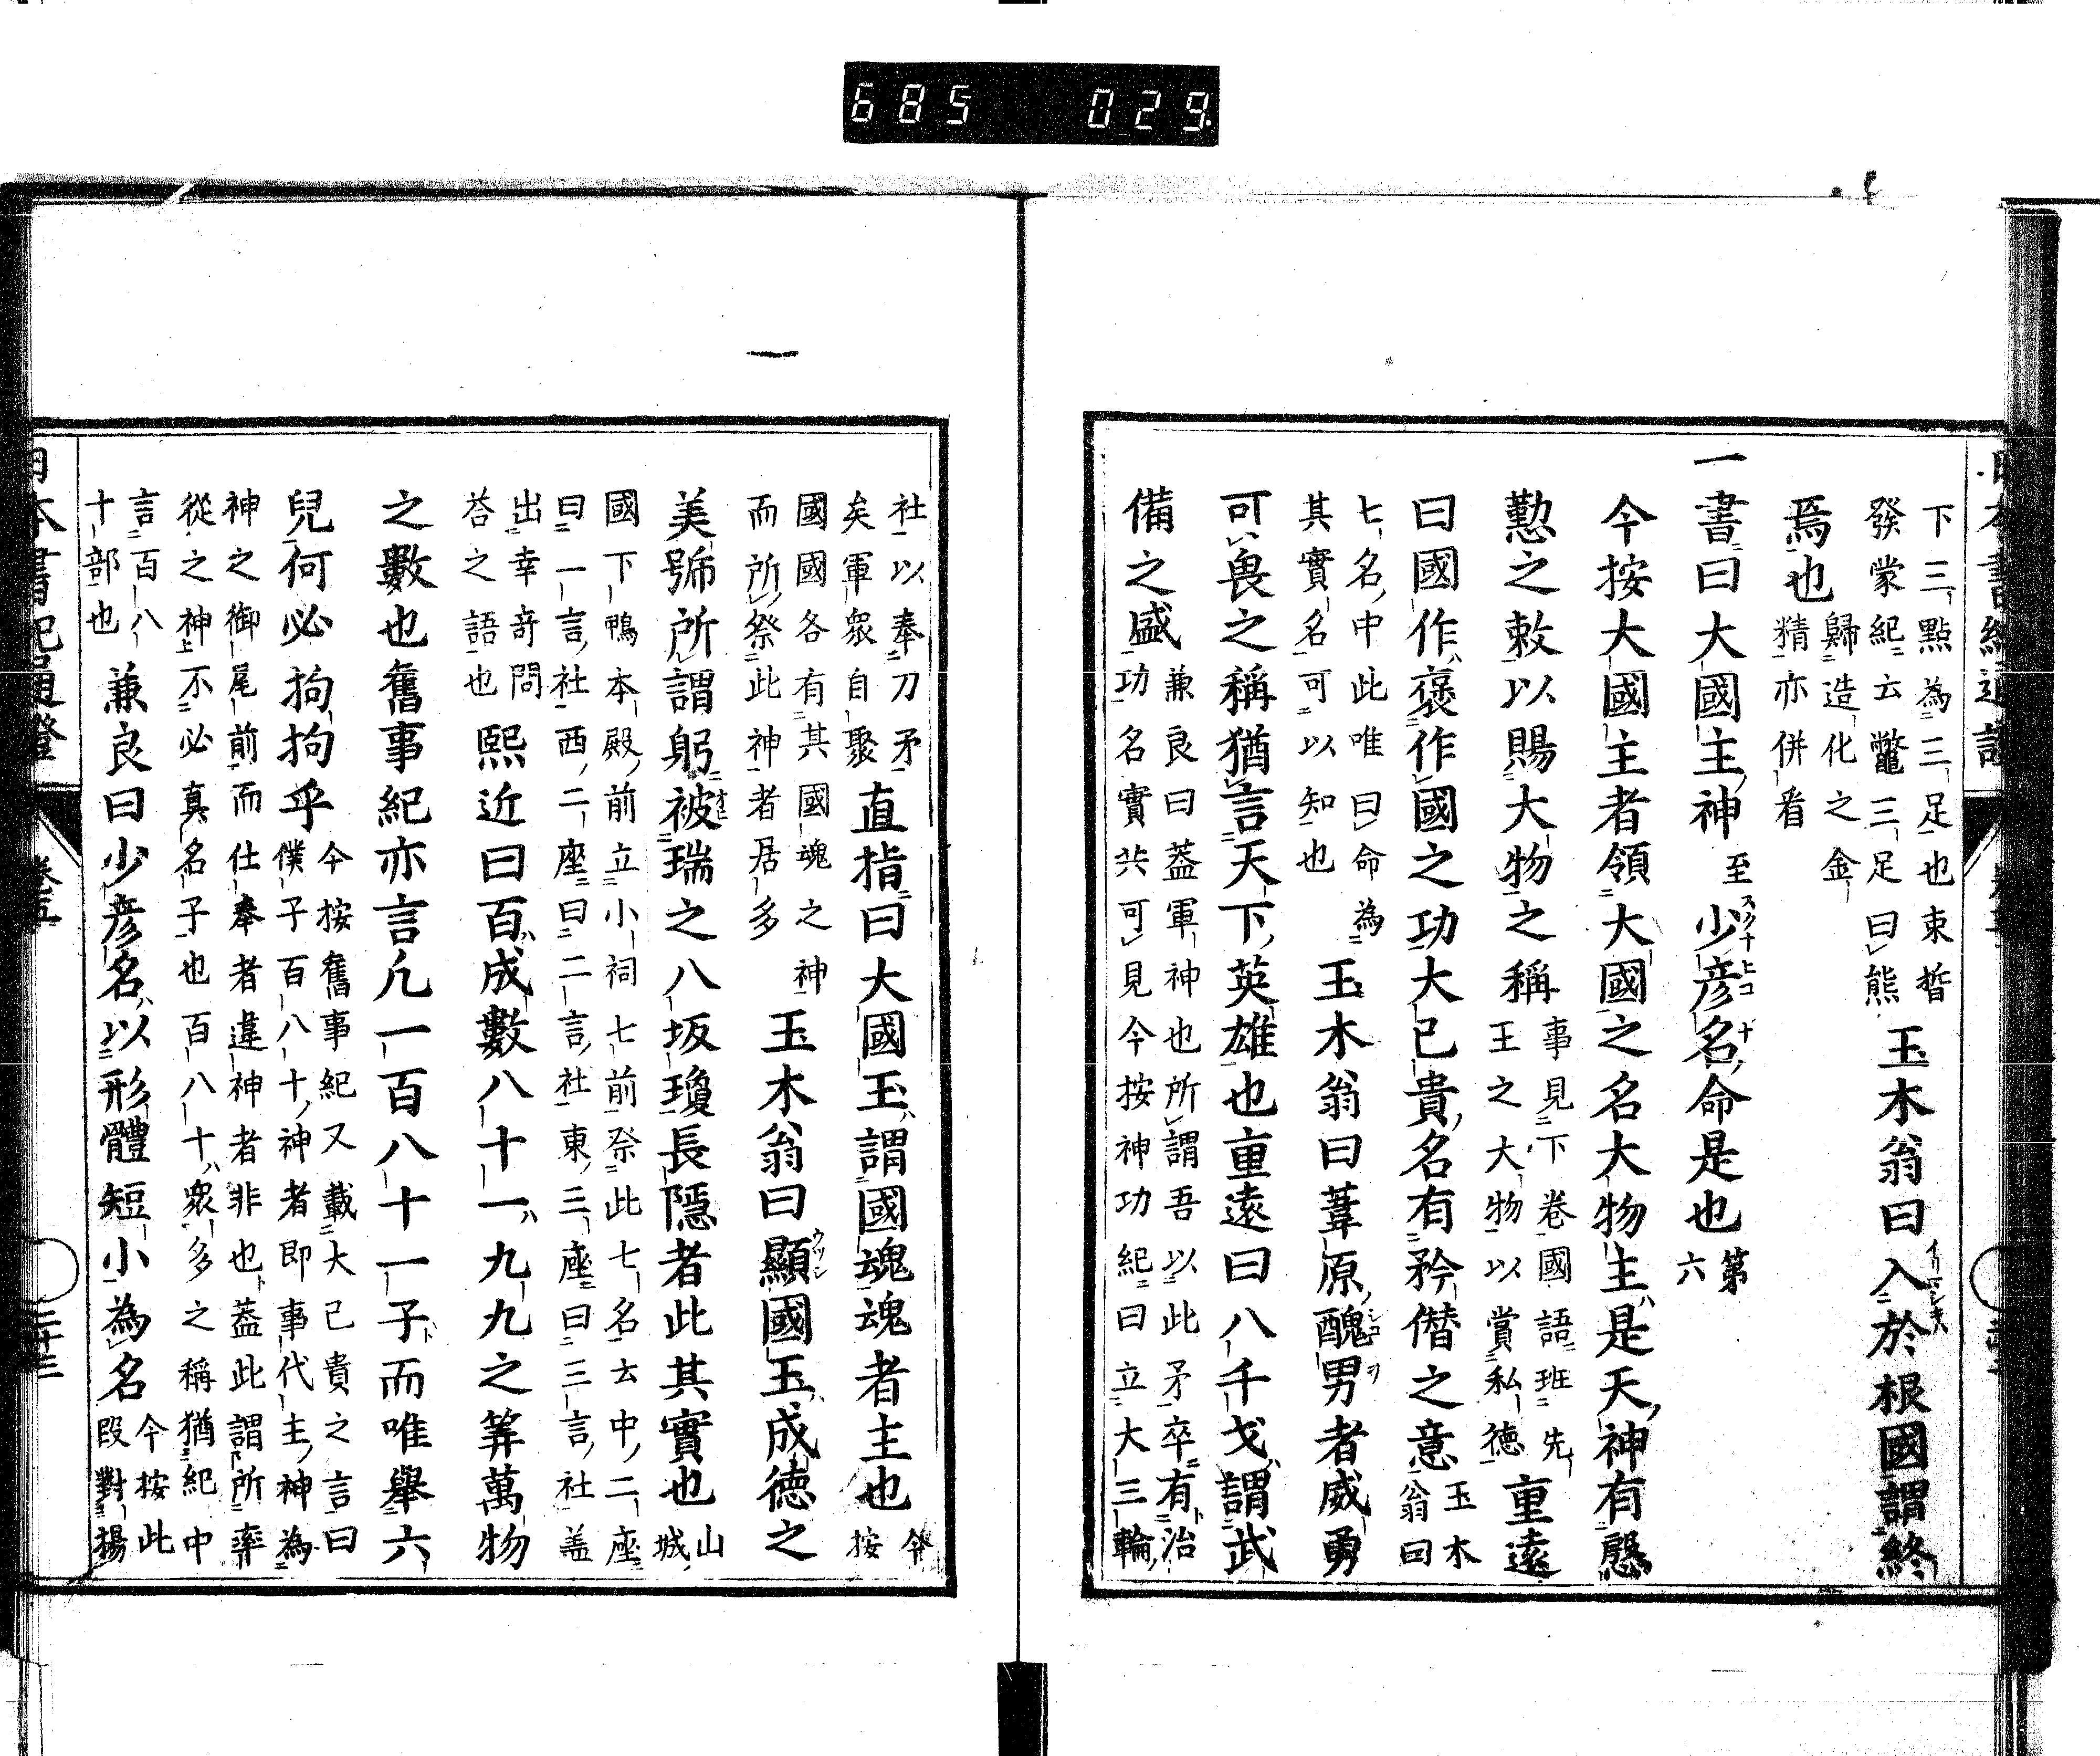 685 029
下三點為三足也束晳
發蒙紀云鼈三足曰熊
玉木翁曰入於根國謂終
焉也
歸造化之金
精亦併看
一書曰大國主神至少彦名命是也第六
今按大國主者領大國之名大物主是天神有慇
懃之敕以賜大物之稱
事見下卷國語班先
王之大物以賞私德
重遠
曰國作褒作國之功大已貴名有矜僭之意
玉木
翁曰
七名中此唯曰命為
其實名可以知也
玉木翁曰葦原醜男者威勇
可畏之稱猶言天下英雄也重遠曰八千戈謂武
備之盛
兼良曰葢軍神也所謂吾以此矛卒有治
功名實共可見今按神功紀曰立大三輪
社以奉刀矛
矣軍眾自聚
直指曰大國玉謂國魂魂者主也
今
按
國國各有其國魂之神
而所祭此神者居多
玉木翁曰顯國玉成德之
美號所謂躬被瑞之八坂瓊長隱者此其實也
山
城
國下鴨本殿前立小祠七前祭此七名云中二座
曰一言社西二座曰二言社東三座曰三言社葢
出幸奇問
荅之語也
熙近曰百成數八十一九九之筭萬物
之數也舊事紀亦言凡一百八十一子而唯舉六
兒何必拘拘乎
今按舊事紀又載大己貴之言曰
僕子百八十神者即事代主神為
神之御尾前而仕奉者違神者非也葢此謂所率
從之神不必真名子也百八十眾多之稱猶紀中
言百八
十部也
兼良曰少彦名以形體短小為名
今按此
段對揚
日本書紀通證
卷五
二十三